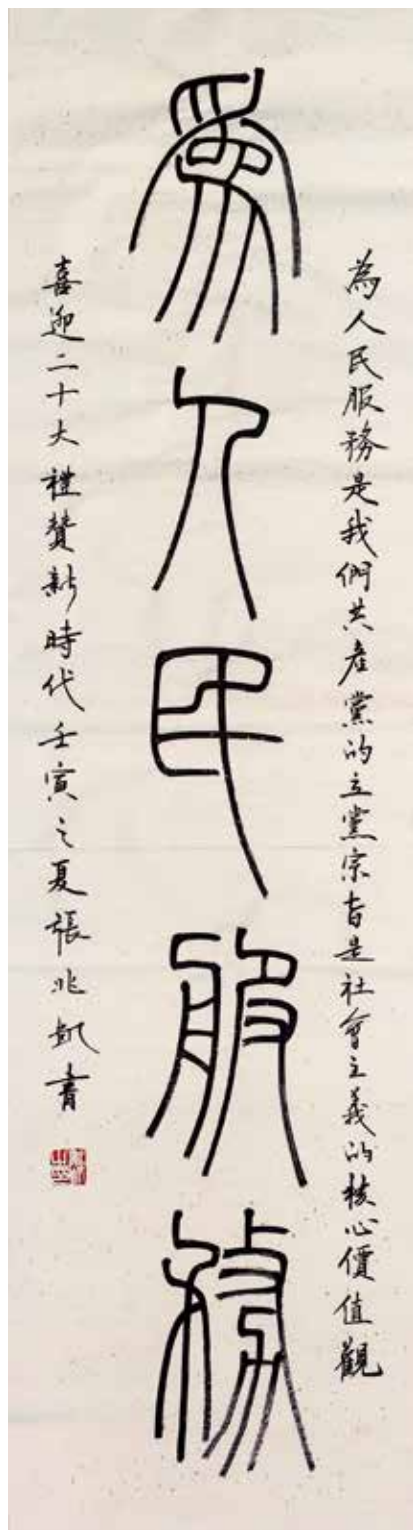 為人民服務是我們共產黨的立黨宗旨是社會主義的核心價值觀
爲人民服務
喜迎二十大禮贊新時代壬寅之夏張兆凱書